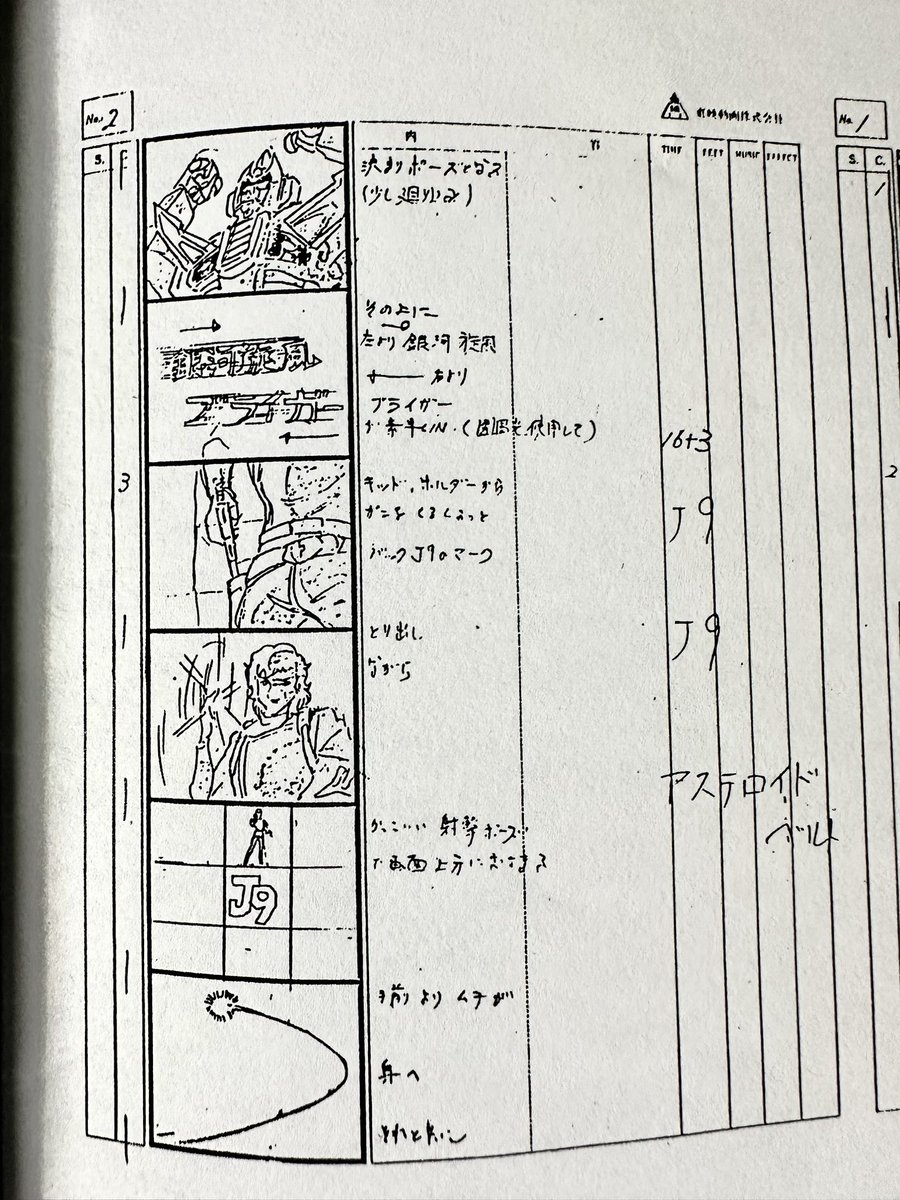 No. 2
No. 1
S.
内
S. C.
決まりポーズとなる
(少し廻り込み)
1
その上に
左より 銀河旋風
右より
ブライガー
が素早くIN.
使用して)
16+3
銀河旋風
ブライガー
3
2
キッド、ホルダーから
ガンをくるくるっと
バック J9のマーク
J9
とり出し
ながら
J9
アステロイド
ベルト
かっこいい 射撃ポーズ
で画面上方におさまる
J9
手前より ムチが
それと共に